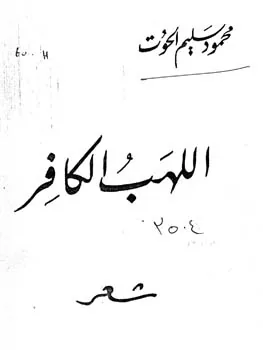 محمود سليم الحوت
اللهَبُ الكافِر
٢٥٠٤
شعر